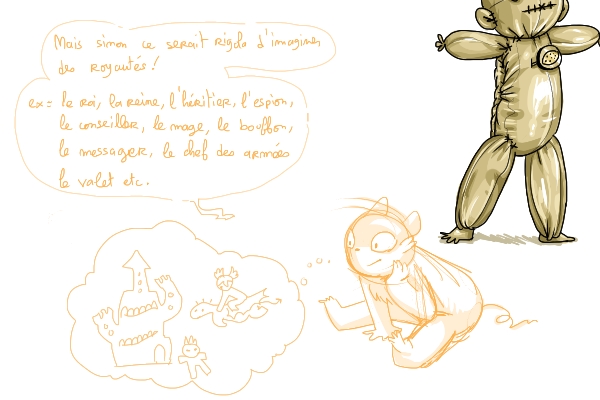 Mais simon ce serait rigolo d'imaginer
des royautés !
ex = le roi, la reine, l'héritier, l'espion,
le conseiller, le mage, le bouffon,
le messager, le chef des armées
le valet etc.